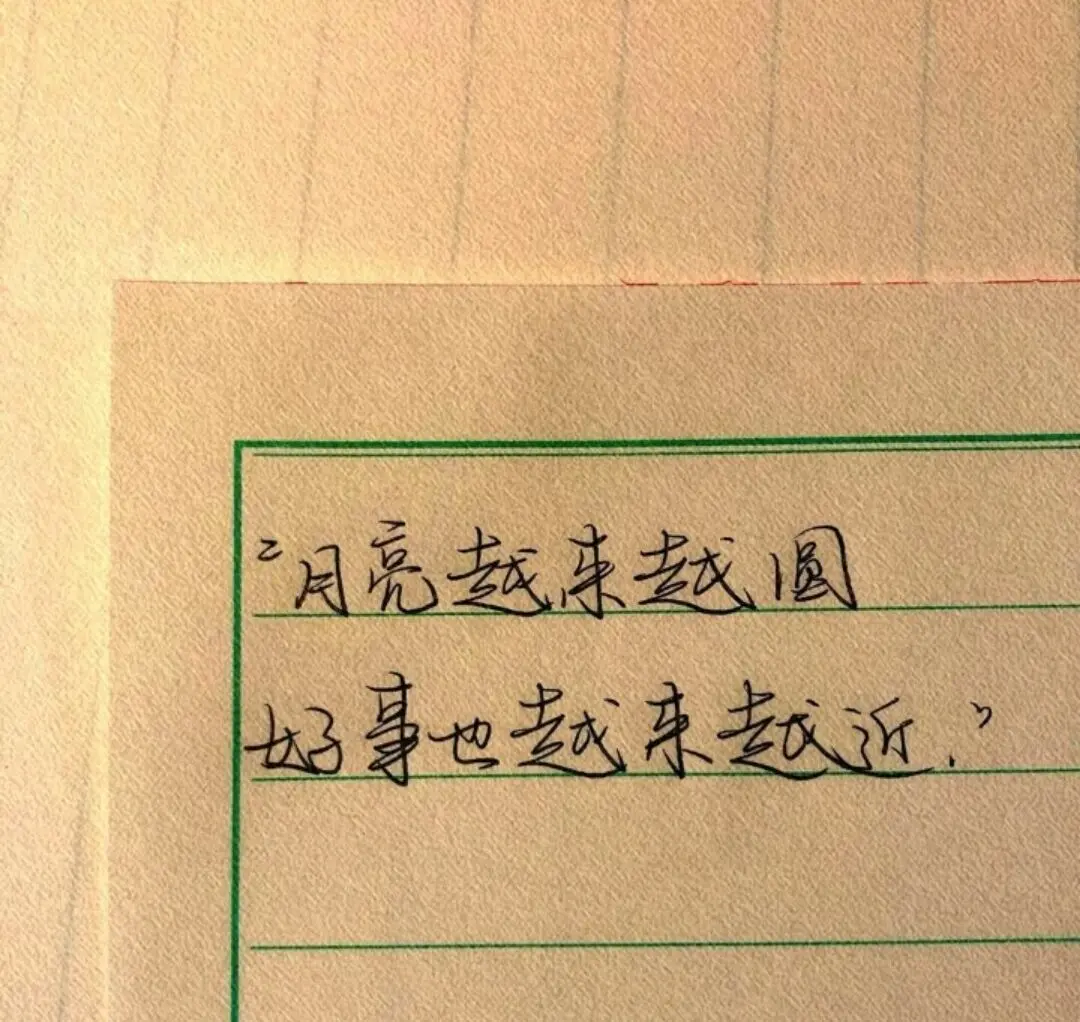 “月亮越来越圆
好事也越来越近.”